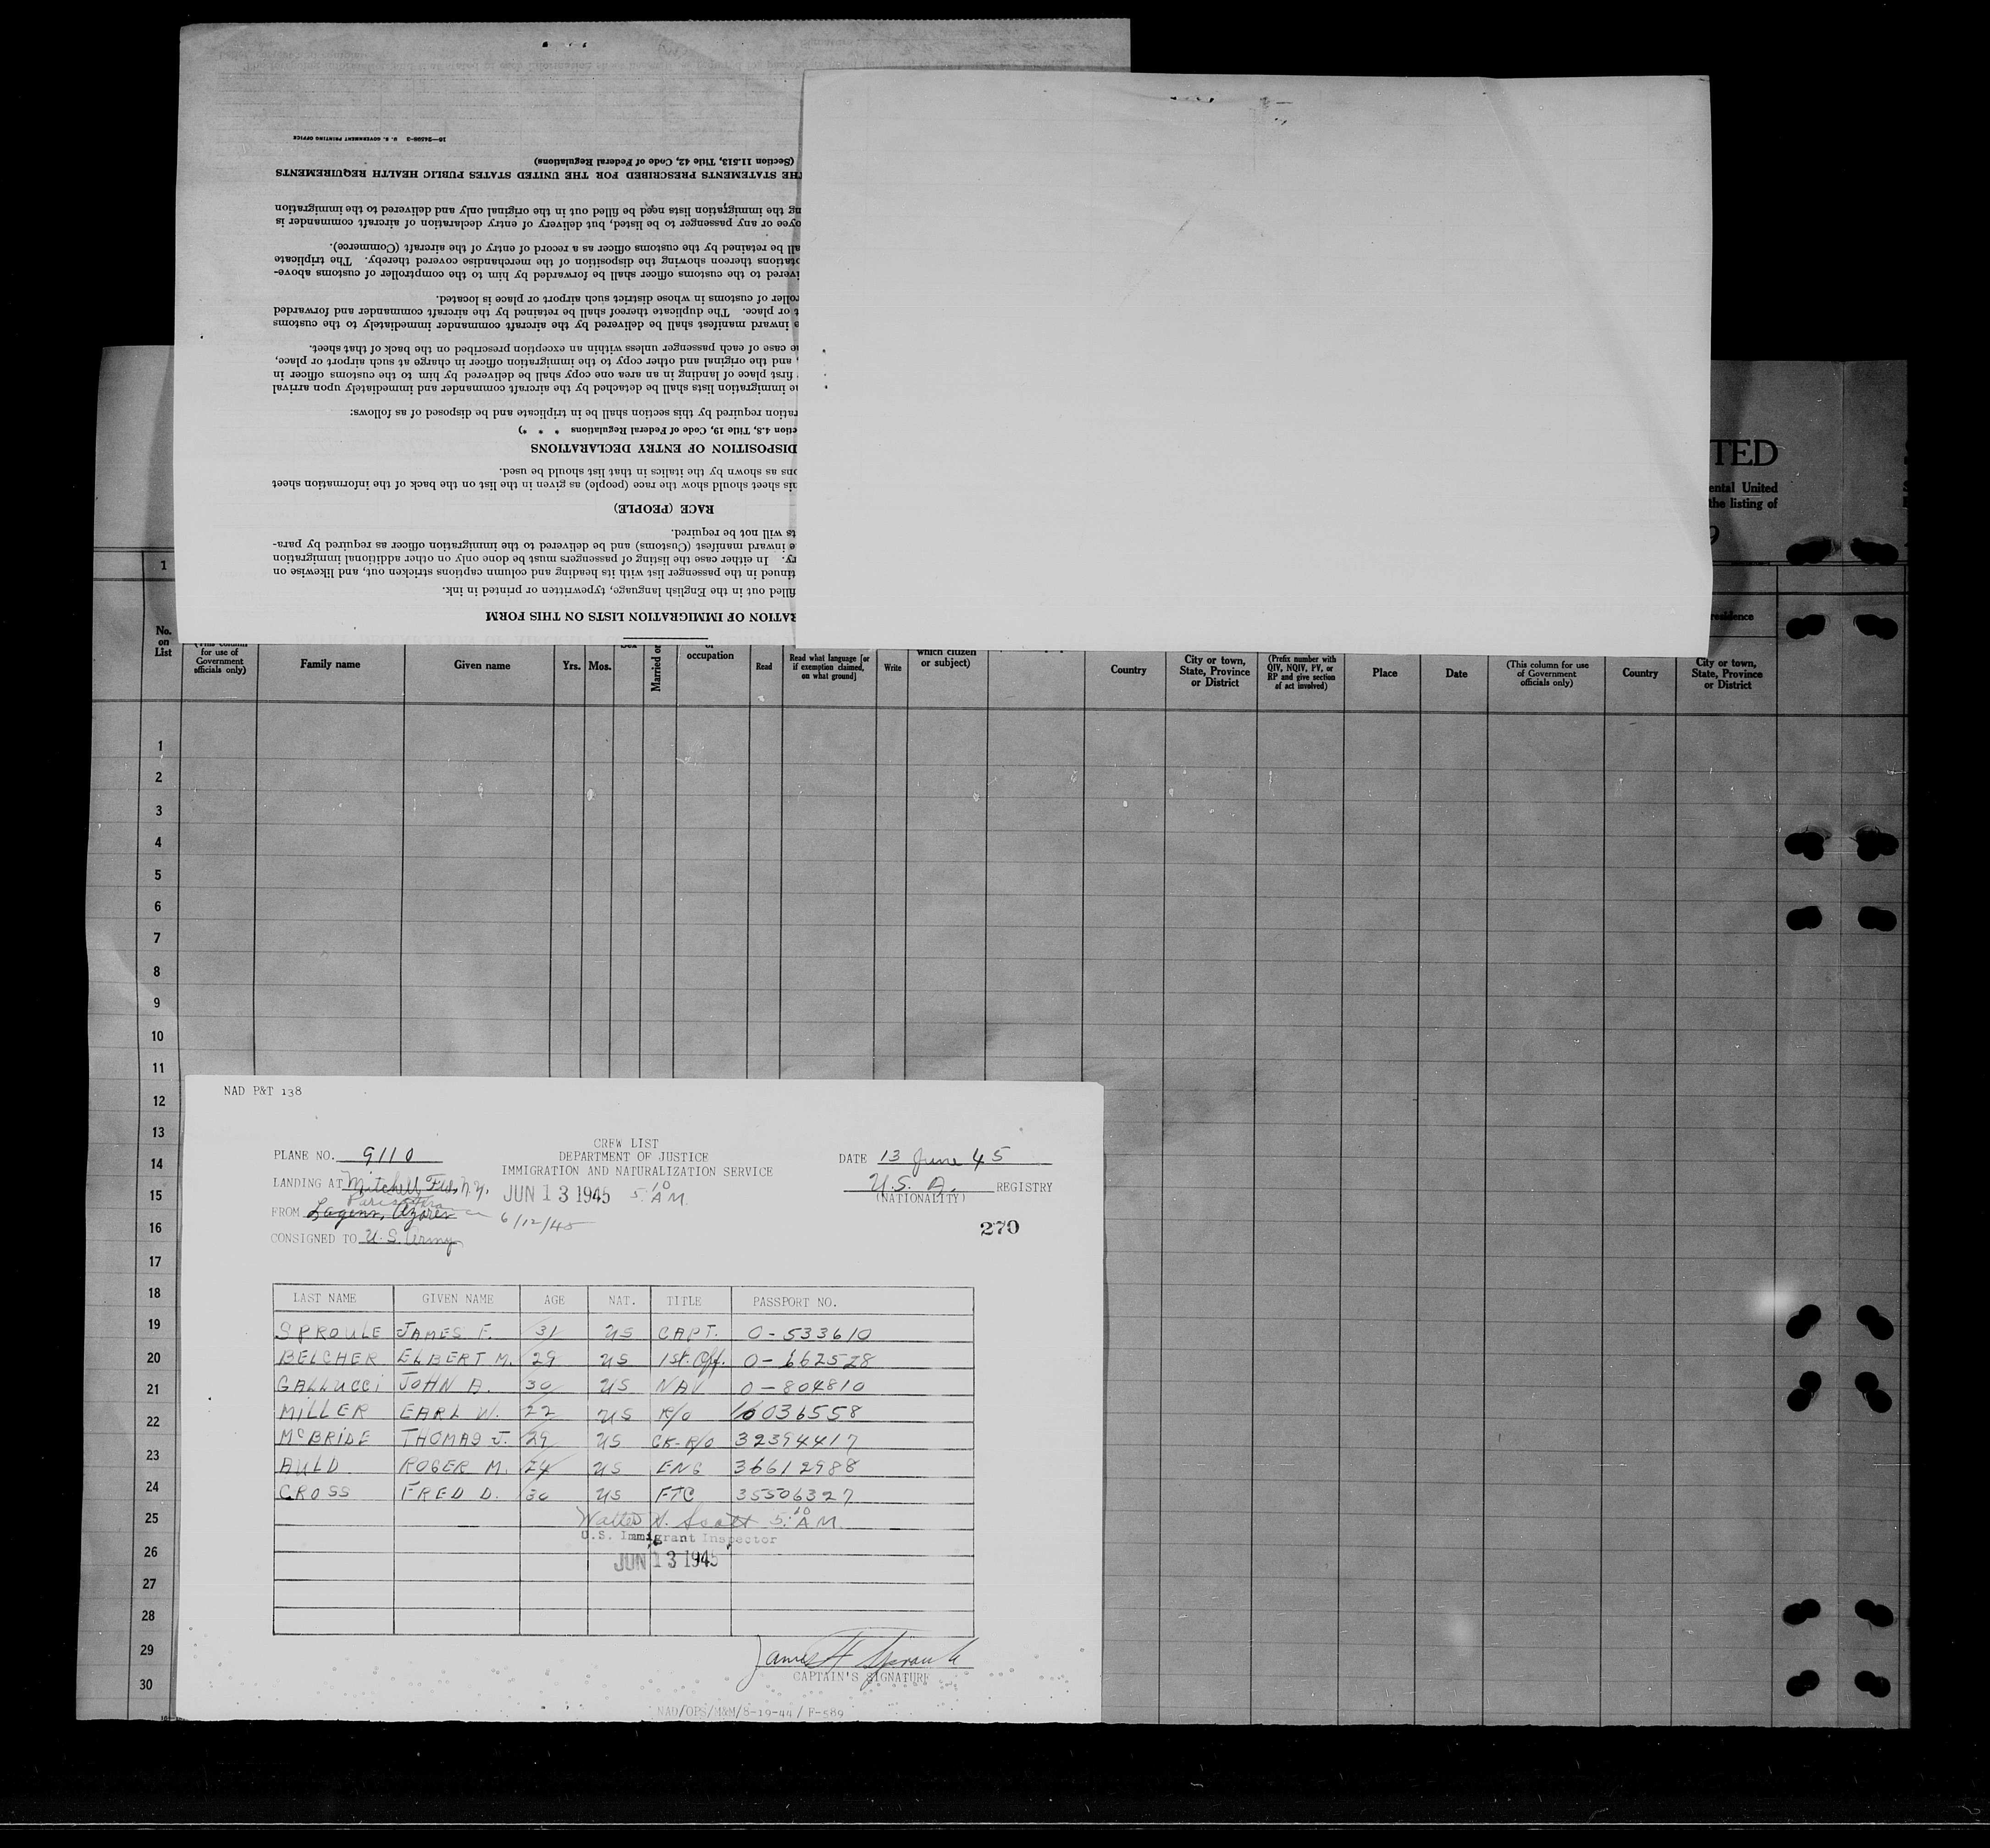 16—24598-3 U. S. GOVERNMENT PRINTING OFFICE
(Section 11.513, Title 42, Code of Federal Regulations)
THE STATEMENTS PRESCRIBED FOR THE UNITED STATES PUBLIC HEALTH REQUIREMENTS
ng the immigration lists need be filled out in the original only and delivered to the immigration
oyee or any passenger to be listed, but delivery of entry declaration of aircraft commander is
all be retained by the customs officer as a record of entry of the aircraft (Commerce).
otations thereon showing the disposition of the merchandise covered thereby. The triplicate
ivered to the customs officer shall be forwarded by him to the comptroller of customs above-
roller of customs in whose district such airport or place is located.
t or place. The duplicate thereof shall be retained by the aircraft commander and forwarded
e inward manifest shall be delivered by the aircraft commander immediately to the customs
he case of each passenger unless within an exception prescribed on the back of that sheet.
, and the original and other copy to the immigration officer in charge at such airport or place,
first place of landing in an area one copy shall be delivered by him to the customs officer in
he immigration lists shall be detached by the aircraft commander and immediately upon arrival
ration required by this section shall be in triplicate and be disposed of as follows:
ction 4.8, Title 19, Code of Federal Regulations * * *)
DISPOSITION OF ENTRY DECLARATIONS
ons as shown by the italics in that list should be used.
his sheet should show the race (people) as given in the list on the back of the information sheet
RACE (PEOPLE)
ts will not be required.
e inward manifest (Customs) and be delivered to the immigration officer as required by para-
ry. In either case the listing of passengers must be done only on other additional immigration
tinued in the passenger list with its heading and column captions stricken out, and likewise on
filled out in the English language, typewritten or printed in ink.
RATION OF IMMIGRATION LISTS ON THIS FORM
TED
ental United
the listing of
9
1
No. on List
(This column for use of Government officials only)
Family name
Given name
Yrs.
Mos.
Sex
Married or
of occupation
Read
Read what language [or if exemption claimed, on what ground]
Write
which citizen or subject)
Country
City or town, State, Province or District
(Prefix number with QIV, NQIV, PV, or RP and give section of act involved)
Place
Date
(This column for use of Government officials only)
residence
Country
City or town, State, Province or District
1
2
3
4
5
6
7
8
9
10
11
12
13
14
15
16
17
18
19
20
21
22
23
24
25
26
27
28
29
30
NAD P&T 138
CREW LIST
DEPARTMENT OF JUSTICE
IMMIGRATION AND NATURALIZATION SERVICE
PLANE NO. 9110
DATE 13 June 45
LANDING AT Mitchell Fld, N.Y. JUN 13 1945 5:10 A.M.
U.S.A. REGISTRY
(NATIONALITY)
Paris
FROM Lagens, Azores 6/12/45
270
CONSIGNED TO U.S. Army
LAST NAME GIVEN NAME AGE NAT. TITLE PASSPORT NO.
SPROULE JAMES F. 31 US CAPT. 0-533610
BELCHER ELBERT M. 29 US 1st. Off. 0-662528
GALLUCCI JOHN A. 30 US NAV 0-804810
MILLER EARL W. 22 US R/O 16036558
McBRIDE THOMAS J. 29 US CK-R/O 32394417
AULD ROGER M. 24 US ENG 36612988
CROSS FRED D. 36 US FTC 35506327
Walter N. Scott 5:10 A.M.
U.S. Immigrant Inspector
JUN 13 1945
James F Sproule
CAPTAIN'S SIGNATURE
NAD/OPS/M&M/8-19-44/ F-589